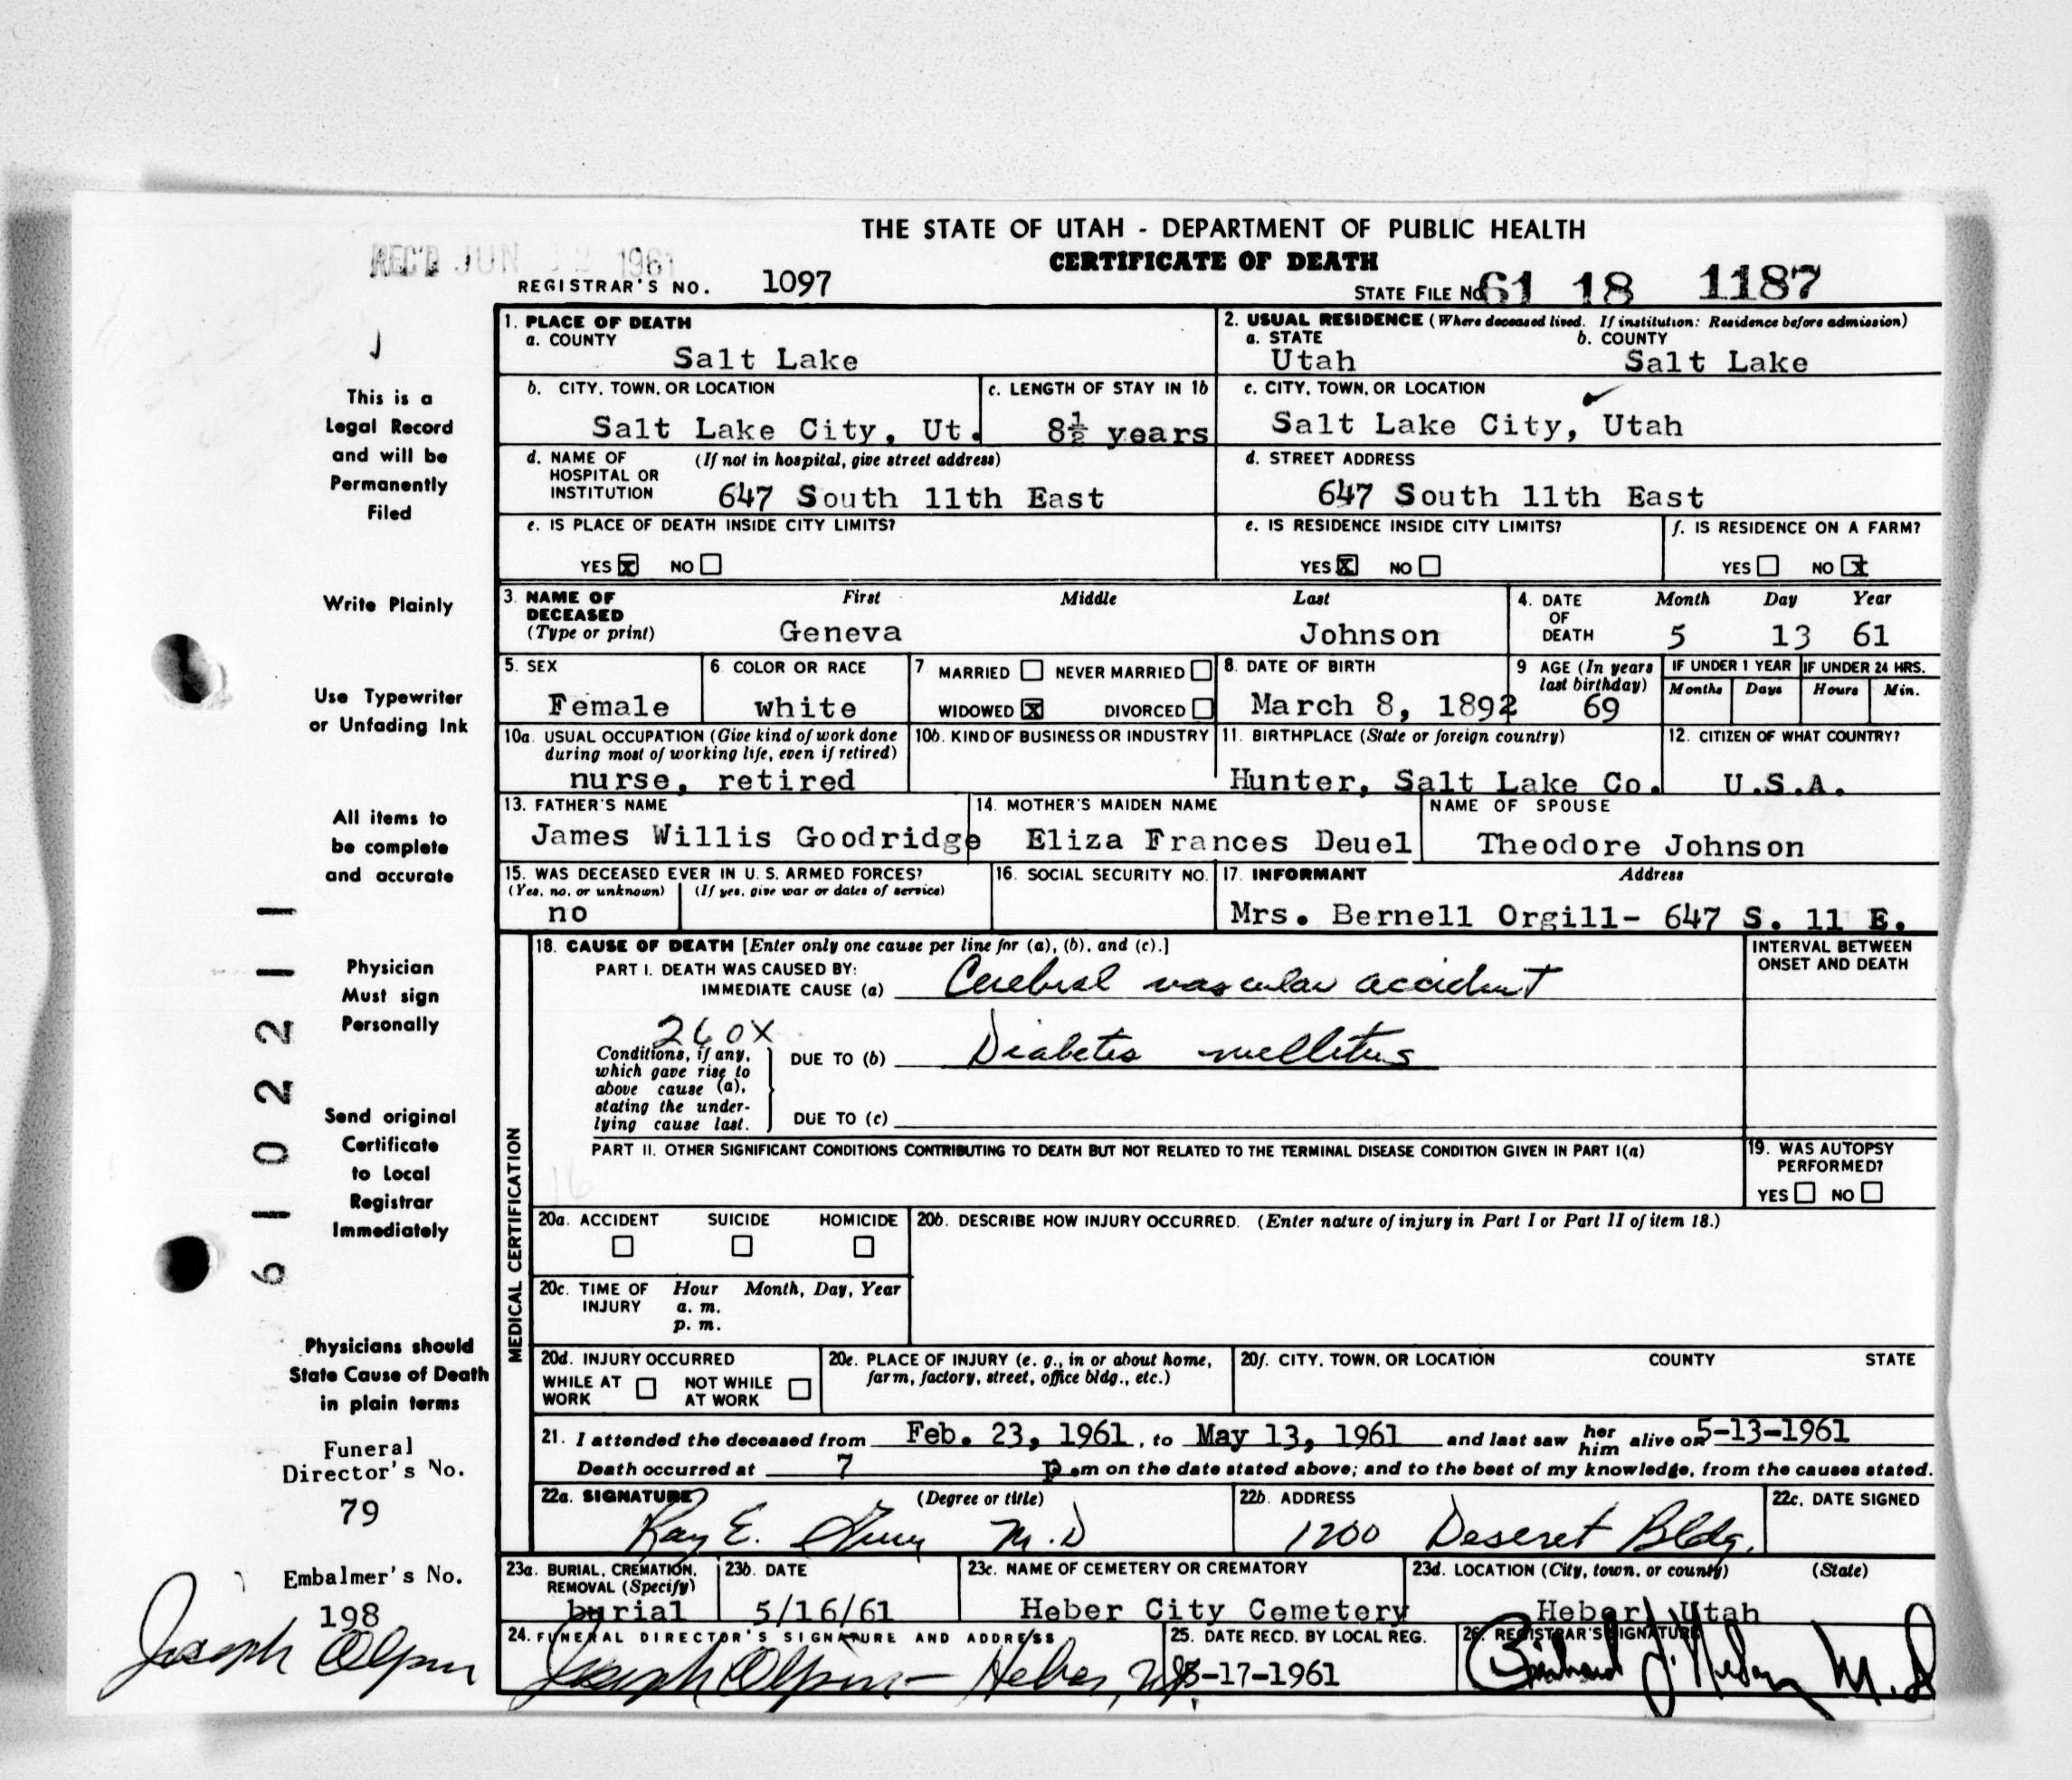 THE STATE OF UTAH - DEPARTMENT OF PUBLIC HEALTH
CERTIFICATE OF DEATH
REC'D JUN 1961
REGISTRAR'S NO. 1097
STATE FILE NO. 61 18 1187
This is a
Legal Record
and will be
Permanently
Filed
Write Plainly
Use Typewriter
or Unfading Ink
All items to
be complete
and accurate
Physician
Must sign
Personally
Send original
Certificate
to Local
Registrar
Immediately
Physicians should
State Cause of Death
in plain terms
Funeral
Director's No.
79
Embalmer's No.
198
Joseph Olpin
6102211
1. PLACE OF DEATH
a. COUNTY
Salt Lake
2. USUAL RESIDENCE (Where deceased lived. If institution: Residence before admission)
a. STATE b. COUNTY
Utah Salt Lake
b. CITY, TOWN, OR LOCATION c. LENGTH OF STAY IN 1b
Salt Lake City, Ut. 8½ years
c. CITY, TOWN, OR LOCATION
Salt Lake City, Utah
d. NAME OF (If not in hospital, give street address)
HOSPITAL OR
INSTITUTION 647 South 11th East
d. STREET ADDRESS
647 South 11th East
e. IS PLACE OF DEATH INSIDE CITY LIMITS?
YES x NO
e. IS RESIDENCE INSIDE CITY LIMITS?
YES x NO
f. IS RESIDENCE ON A FARM?
YES NO x
3. NAME OF First Middle Last
DECEASED
(Type or print) Geneva Johnson
4. DATE Month Day Year
OF
DEATH 5 13 61
5. SEX
Female
6. COLOR OR RACE
white
7 MARRIED NEVER MARRIED
WIDOWED x DIVORCED
8. DATE OF BIRTH
March 8, 1892
9 AGE (In years
last birthday)
69
IF UNDER 1 YEAR IF UNDER 24 HRS.
Months Days Hours Min.
10a. USUAL OCCUPATION (Give kind of work done
during most of working life, even if retired)
nurse, retired
10b. KIND OF BUSINESS OR INDUSTRY
11. BIRTHPLACE (State or foreign country)
Hunter, Salt Lake Co.
12. CITIZEN OF WHAT COUNTRY?
U.S.A.
13. FATHER'S NAME
James Willis Goodridge
14. MOTHER'S MAIDEN NAME
Eliza Frances Deuel
NAME OF SPOUSE
Theodore Johnson
15. WAS DECEASED EVER IN U. S. ARMED FORCES?
(Yes, no, or unknown) (If yes, give war or dates of service)
no
16. SOCIAL SECURITY NO.
17. INFORMANT Address
Mrs. Bernell Orgill- 647 S. 11 E.
MEDICAL CERTIFICATION
18. CAUSE OF DEATH [Enter only one cause per line for (a), (b), and (c).]
INTERVAL BETWEEN
ONSET AND DEATH
PART I. DEATH WAS CAUSED BY:
IMMEDIATE CAUSE (a) Cerebral vascular accident
260X
Conditions, if any,
which gave rise to
above cause (a),
stating the under-
lying cause last.
DUE TO (b) Diabetes mellitus
DUE TO (c)
PART II. OTHER SIGNIFICANT CONDITIONS CONTRIBUTING TO DEATH BUT NOT RELATED TO THE TERMINAL DISEASE CONDITION GIVEN IN PART I(a)
19. WAS AUTOPSY
PERFORMED?
YES NO
16
20a. ACCIDENT SUICIDE HOMICIDE
20b. DESCRIBE HOW INJURY OCCURRED. (Enter nature of injury in Part I or Part II of item 18.)
20c. TIME OF Hour Month, Day, Year
INJURY a. m.
p. m.
20d. INJURY OCCURRED
WHILE AT NOT WHILE
WORK AT WORK
20e. PLACE OF INJURY (e. g., in or about home,
farm, factory, street, office bldg., etc.)
20f. CITY, TOWN, OR LOCATION COUNTY STATE
21. I attended the deceased from Feb. 23, 1961, to May 13, 1961 and last saw her him alive on 5-13-1961
Death occurred at 7 p.m on the date stated above; and to the best of my knowledge, from the causes stated.
22a. SIGNATURE (Degree or title)
Ray E. M.D
22b. ADDRESS
1200 Deseret Bldg.
22c. DATE SIGNED
23a. BURIAL, CREMATION,
REMOVAL (Specify)
burial
23b. DATE
5/16/61
23c. NAME OF CEMETERY OR CREMATORY
Heber City Cemetery
23d. LOCATION (City, town, or county) (State)
Heber, Utah
24. FUNERAL DIRECTOR'S SIGNATURE AND ADDRESS
Joseph Olpin - Heber, Ut.
25. DATE RECD. BY LOCAL REG.
5-17-1961
26. REGISTRAR'S SIGNATURE
M.D